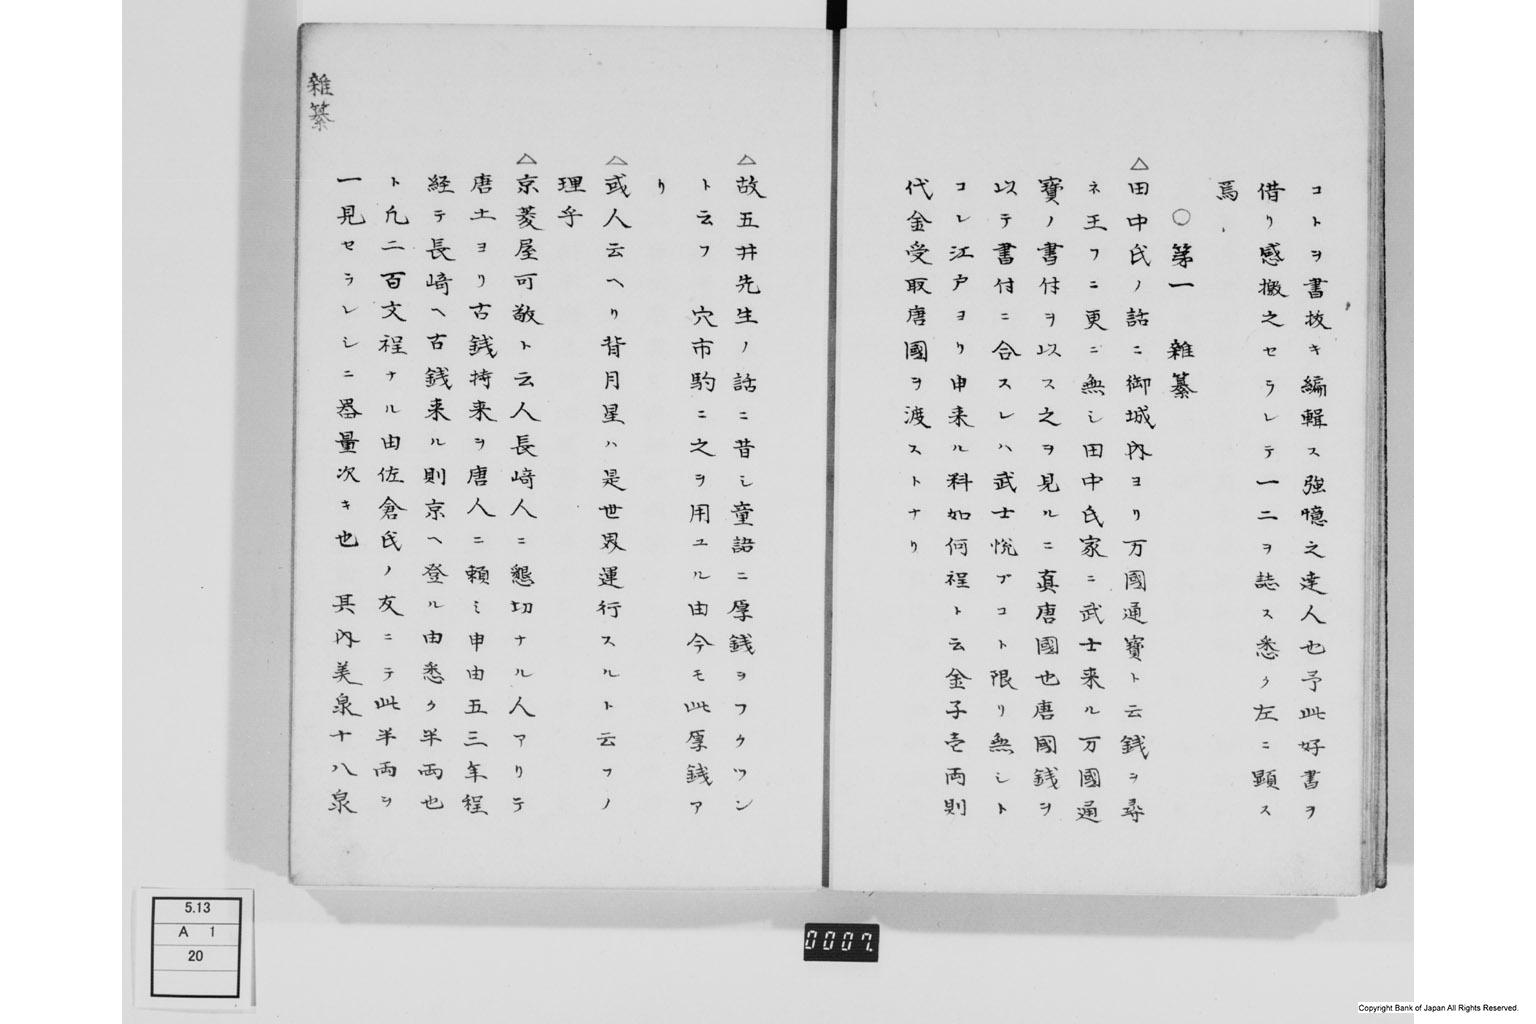 コトヲ書抜キ編輯ス強憶之達人也予此好書ヲ
借リ感撽之セラレテ一二ヲ誌ス悉ク左ニ顕ス
焉
○第一 雑纂
△田中氏ノ話ニ御城内ヨリ万國通寳ト云銭ヲ尋
ネ玉フニ更ニ無シ田中氏家ニ武士来ル万國通
寳ノ書付ヲ以ス之ヲ見ルニ真唐國也唐國銭ヲ
以テ書付ニ合スレハ武士悦ブコト限リ無シト
コレ江戸ヨリ申来ル料如何程ト云金子壱両則
代金受取唐國ヲ渡ストナリ
△故五井先生ノ話ニ昔シ童語ニ厚銭ヲフクツン
ト云フ 穴市駒ニ之ヲ用ユル由今モ此厚銭ア
リ
△或人云ヘリ背月星ハ是世界運行スルト云フノ
理乎
△京菱屋可敬ト云人長﨑人ニ懇切ナル人アリテ
唐土ヨリ古銭持来ヲ唐人ニ頼ミ申由五三年程
経テ長﨑ヘ古銭来ル則京ヘ登ル由悉ク半両也
ト凢二百文程ナル由佐倉氏ノ友ニテ此半両ヲ
一見セラレシニ器量次キ也 其内美泉十八泉
雑纂
5.13
A 1
20
0007.
Copyright Bank of Japan All Rights Reserved.